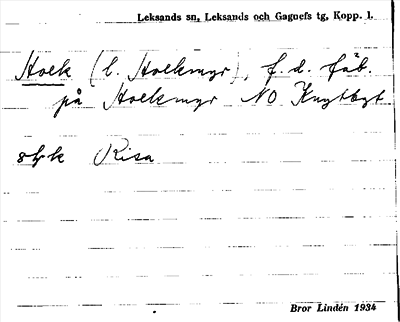 Leksands sn, Leksands och Gagnefs tg, Kopp. l.
Stock (l. Stockmyr), f.d. fäb.
på Stockmyr NO Knytbyt
styk Risa
Bror Lindén 1934